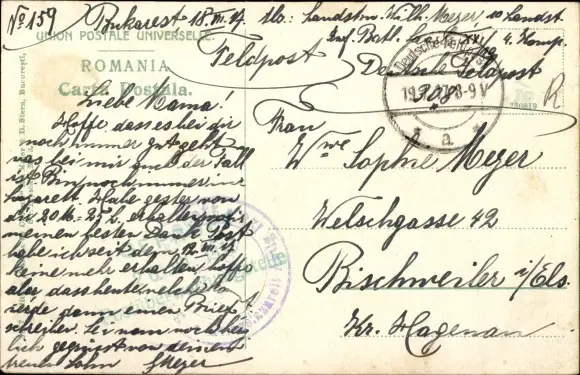 No 159 Bukarest 18.VII.17. Abs: Landstm. Wilh. Meyer, 10 Landst.
Inf. Batl. 4. Komp.
UNION POSTALE UNIVERSELLE.
Feldpost Deutsche Feldpost
ROMANIA
Carta Postala.
Liebe Mama!
Hoffe, dass es bei dir
noch immer gut geht
was bei mir auch der Fall
ist. Bin noch immer im
Lazarett. Habe gestern von
dir 20 M. erhalten
meinen besten Dank. Post
habe ich seit dem 12.VII.17.
keine mehr erhalten, hoffe
aber dass heute welche kom
werde dann einen Brief
schreiben. Sei nun noch herz
lich gegrüsst von deinem
treuen Sohn Meyer
Frau
Wwe Sophie Meyer
Welschgasse 42
Bischweiler i/Els.
Kr. Hagenau
Deutsche Feldpost
8-9 V
* a *
R